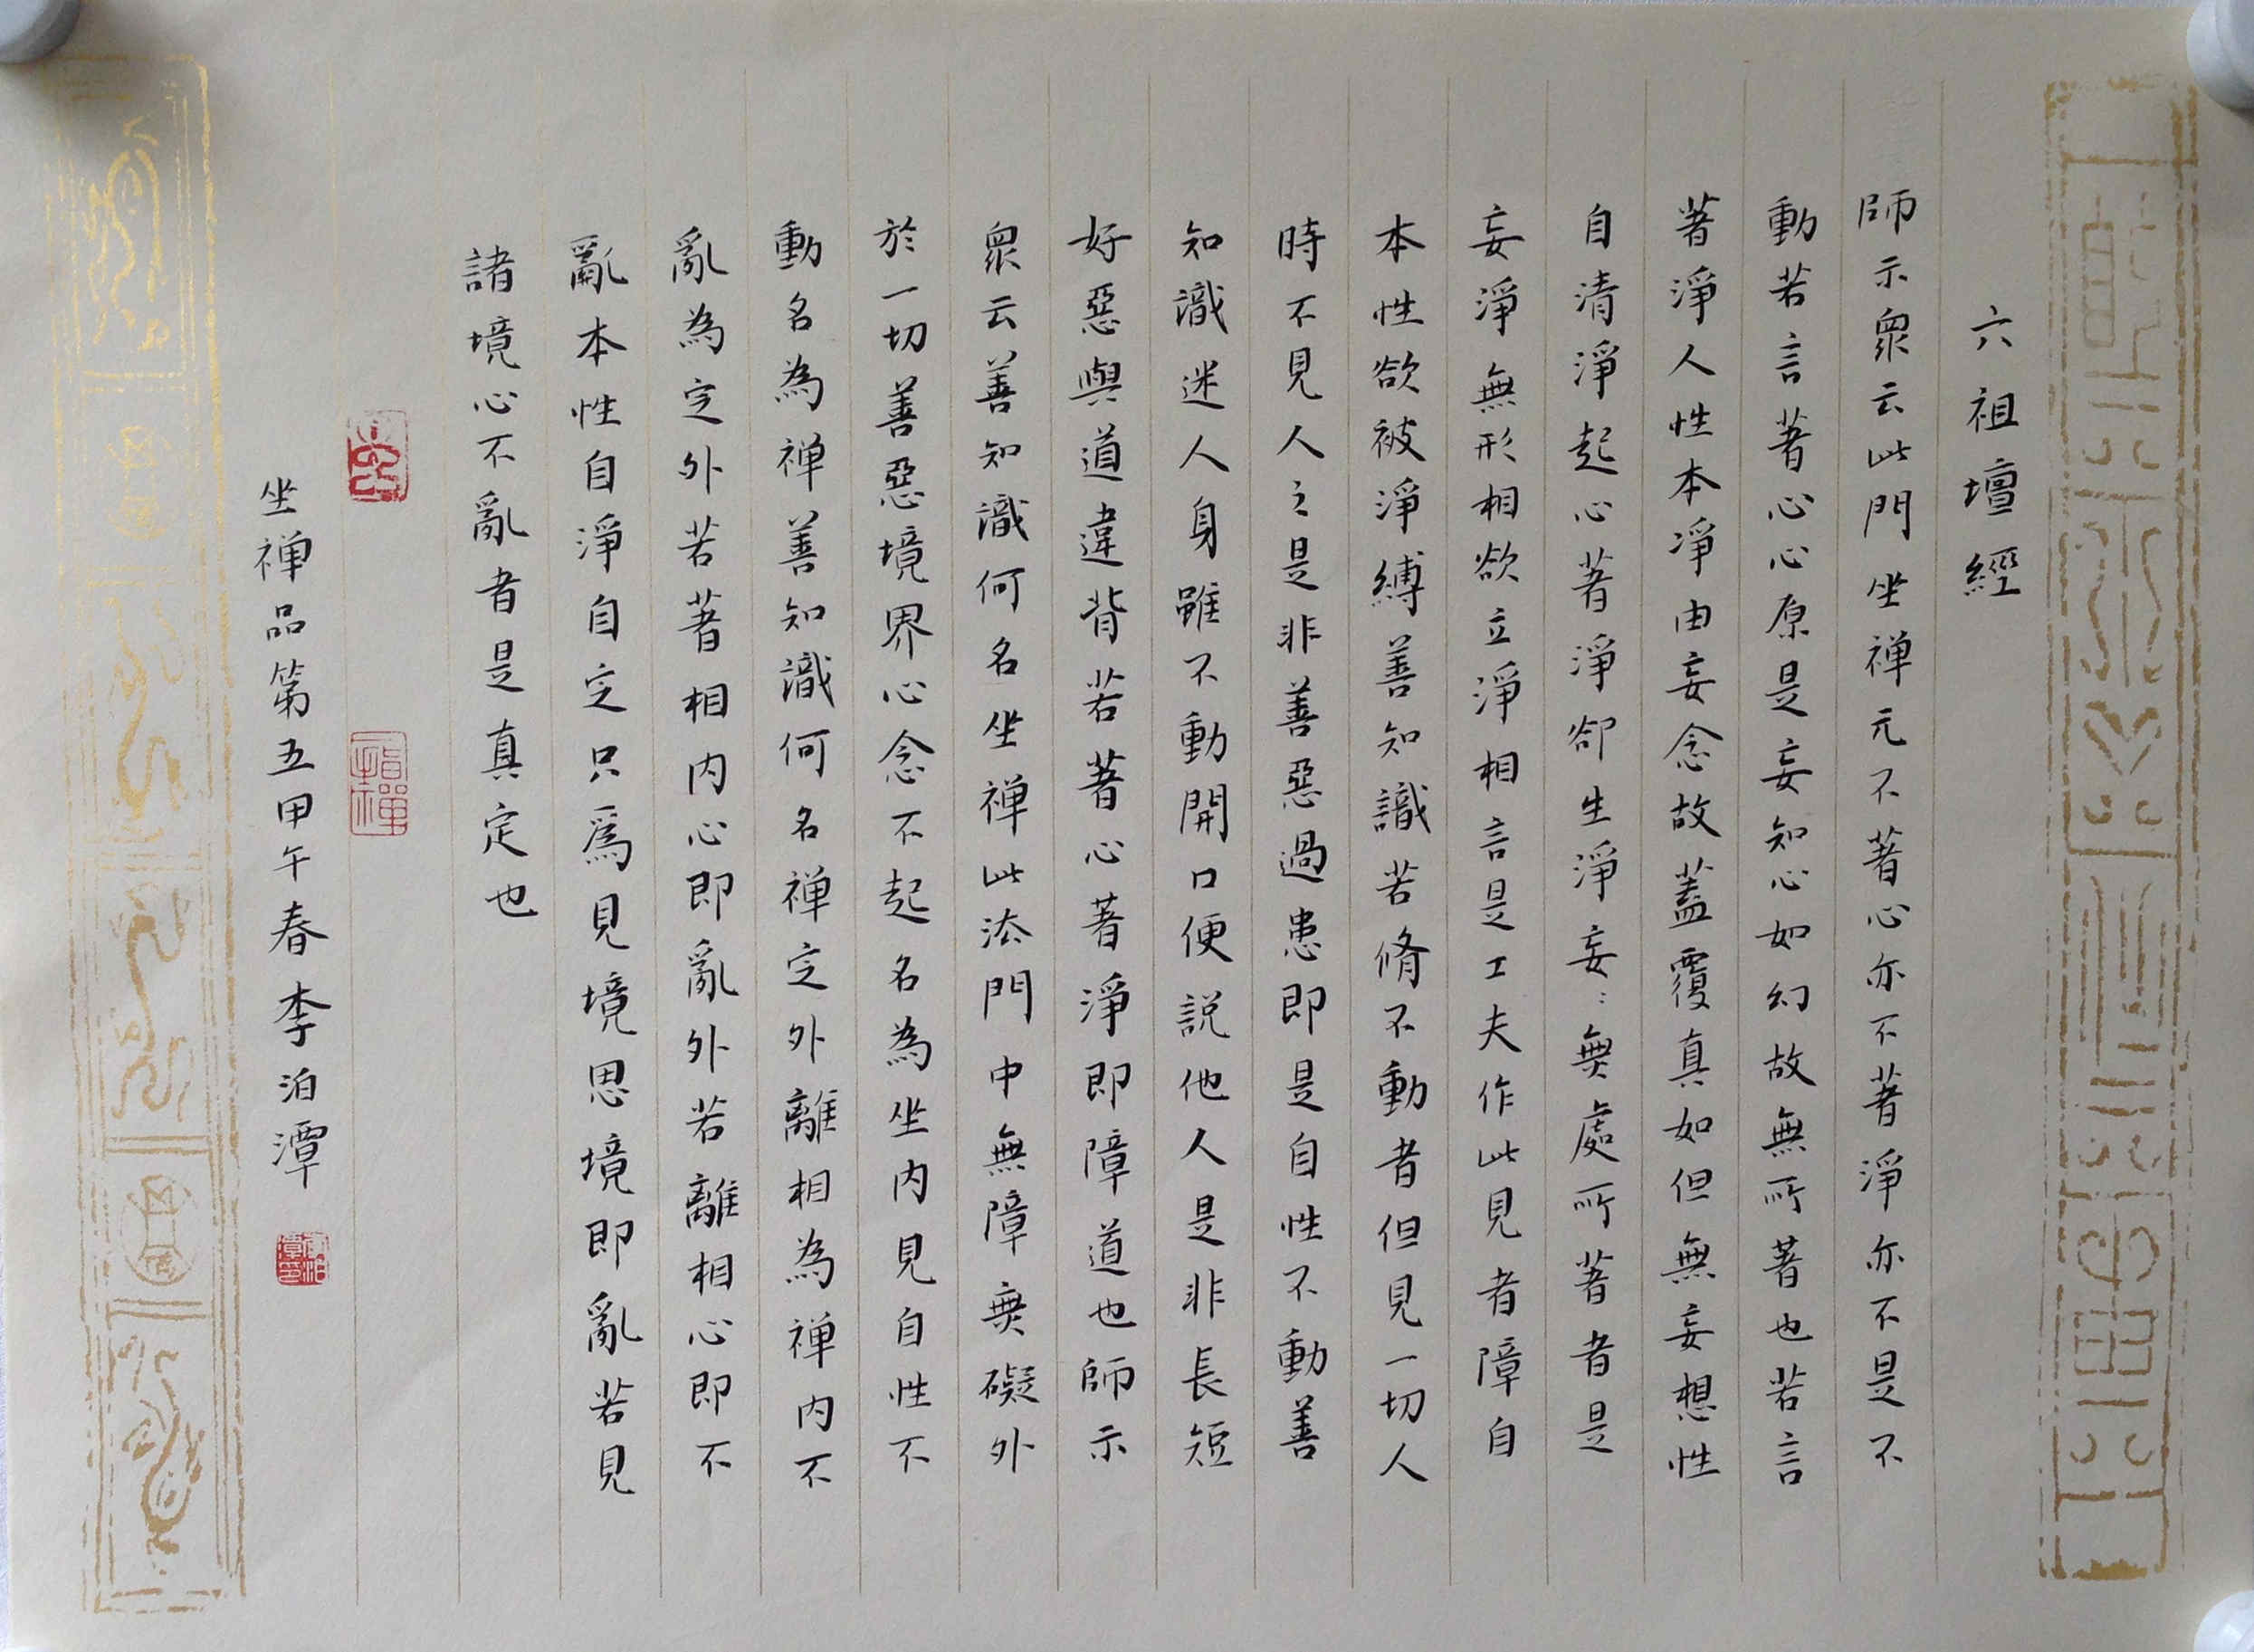 六祖壇經
師示眾云此門坐禅元不著心亦不著淨亦不是不
動若言著心心原是妄知心如幻故無所著也若言
著淨人性本淨由妄念故蓋覆真如但無妄想性
自清淨起心著淨卻生淨妄〻無處所著者是
妄淨無形相欲立淨相言是工夫作此見者障自
本性欲被淨縛善知識若脩不動者但見一切人
時不見人之是非善惡過患即是自性不動善
知識迷人身雖不動開口便説他人是非長短
好惡與道違背若著心著淨即障道也師示
眾云善知識何名坐禅此法門中無障無礙外
於一切善惡境界心念不起名為坐内見自性不
動名為禅善知識何名禅定外離相為禅内不
亂為定外若著相内心即亂外若離相心即不
亂本性自淨自定只為見境思境即亂若見
諸境心不亂者是真定也
坐禅品第五甲午春李泊潭